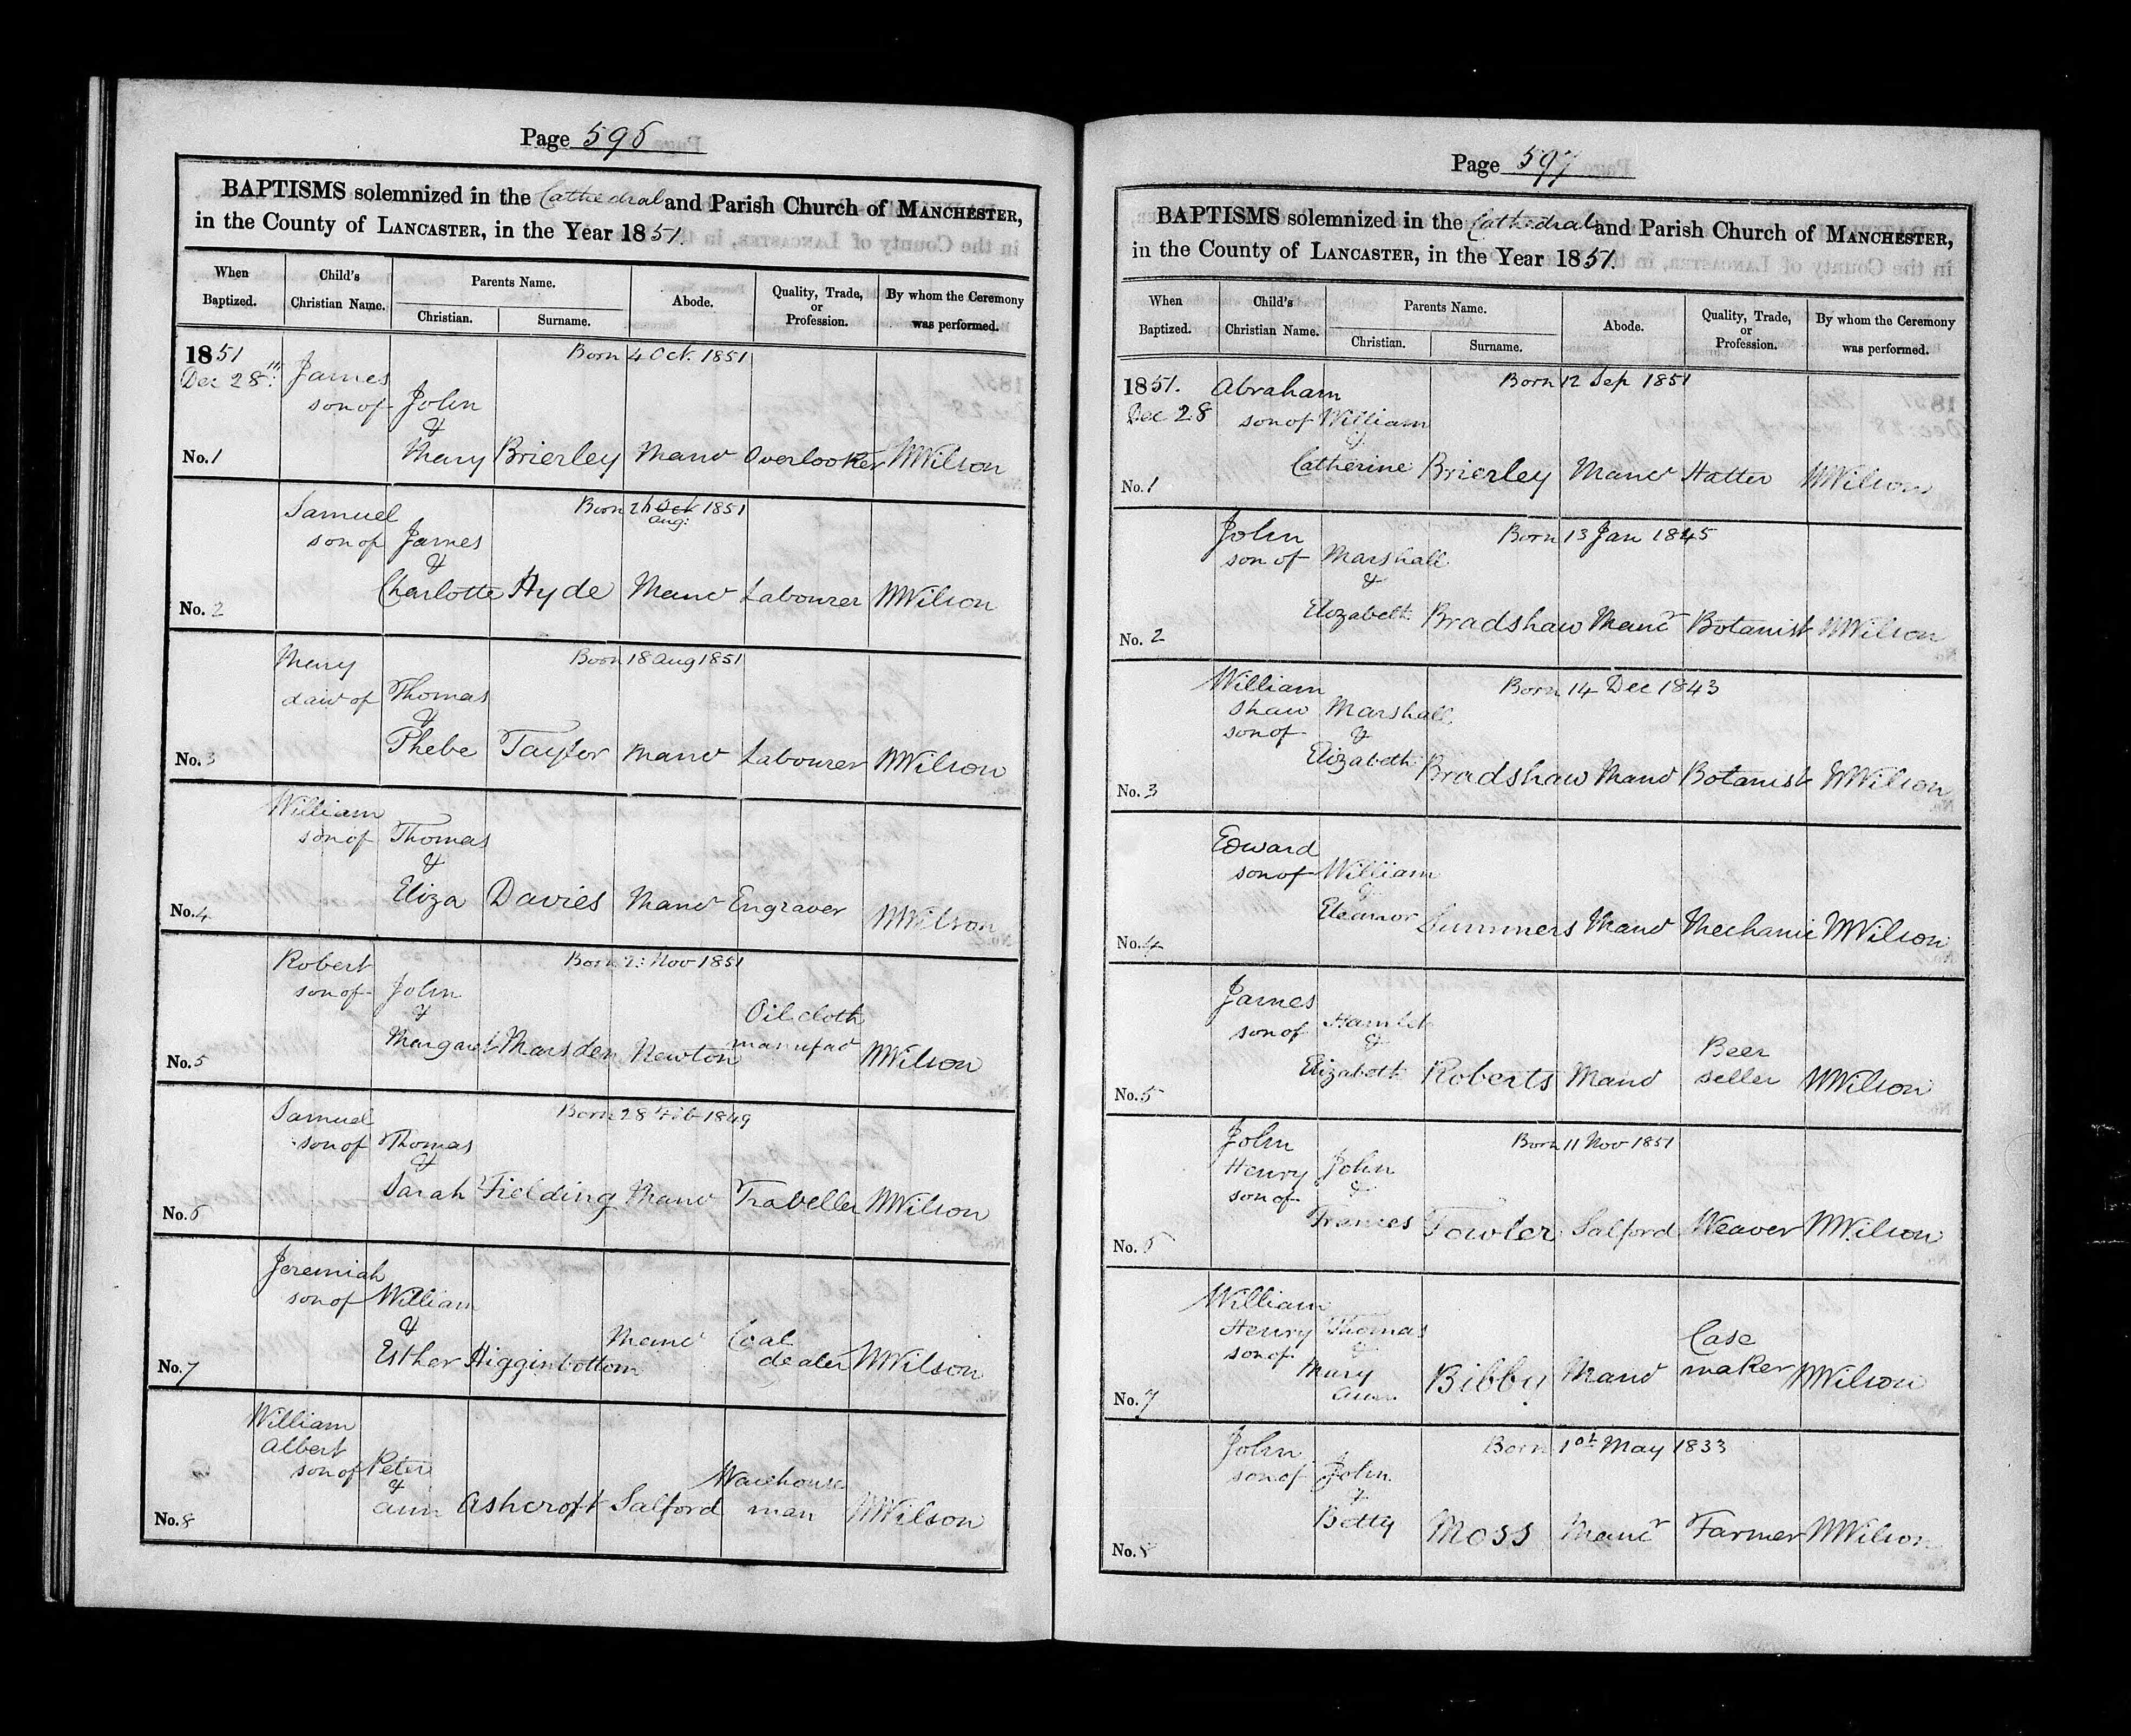 Page 596
BAPTISMS solemnized in the Cathedral and Parish Church of MANCHESTER,
in the County of LANCASTER, in the Year 1851.
When Baptized.
Child's Christian Name.
Parents Name.
Christian.
Surname.
Abode.
Quality, Trade, or Profession.
By whom the Ceremony was performed.
1851
Born 4 Oct. 1851
Dec 28th James
son of John
&
No. 1 Mary Brierley Manr Overlooker WWilson
Born 21 Oct 1851
Aug:
Samuel
son of James
&
No. 2 Charlotte Hyde Manr Labourer WWilson
Born 18 Aug 1851
Mary
daur of Thomas
&
No. 3 Phebe Taylor Manr Labourer WWilson
William
son of Thomas
&
No. 4 Eliza Davies Manr Engraver WWilson
Born 2: Nov 1851
Robert
son of John
&
Oil cloth
No. 5 Margaret Marsden Newton manufar WWilson
Born 28 Feb 1849
Samuel
son of Thomas
&
No. 6 Sarah Fielding Manr Traveller WWilson
Jeremiah
son of William
&
Manr Coal
No. 7 Esther Higginbottom dealer WWilson
William
Albert
son of Peter
&
Warehouse
No. 8 Ann Ashcroft Salford man WWilson
Page 597
BAPTISMS solemnized in the Cathedral and Parish Church of MANCHESTER,
in the County of LANCASTER, in the Year 1851.
When Baptized.
Child's Christian Name.
Parents Name.
Christian.
Surname.
Abode.
Quality, Trade, or Profession.
By whom the Ceremony was performed.
Born 12 Sep 1851
1851. Abraham
Dec 28 son of William
&
No. 1 Catherine Brierley Manr Hatter WWilson
Born 13 Jan 1845
John
son of Marshall
&
No. 2 Elizabeth Bradshaw Manr Botanist WWilson
Born 14 Dec 1843
William
Shaw Marshall
son of &
No. 3 Elizabeth Bradshaw Manr Botanist WWilson
Edward
son of William
&
No. 4 Eleanor Summers Manr Mechanic WWilson
James
son of Hamlet
&
Beer
No. 5 Elizabeth Roberts Manr seller WWilson
Born 11 Nov 1851
John
Henry John
son of &
No. 6 Frances Fowler Salford Weaver WWilson
William
Henry Thomas
son of &
Case
Mary
No. 7 Ann Bibby Manr maker WWilson
Born 1st May 1833
John
son of John
&
No. 8 Betty Moss Manr Farmer WWilson